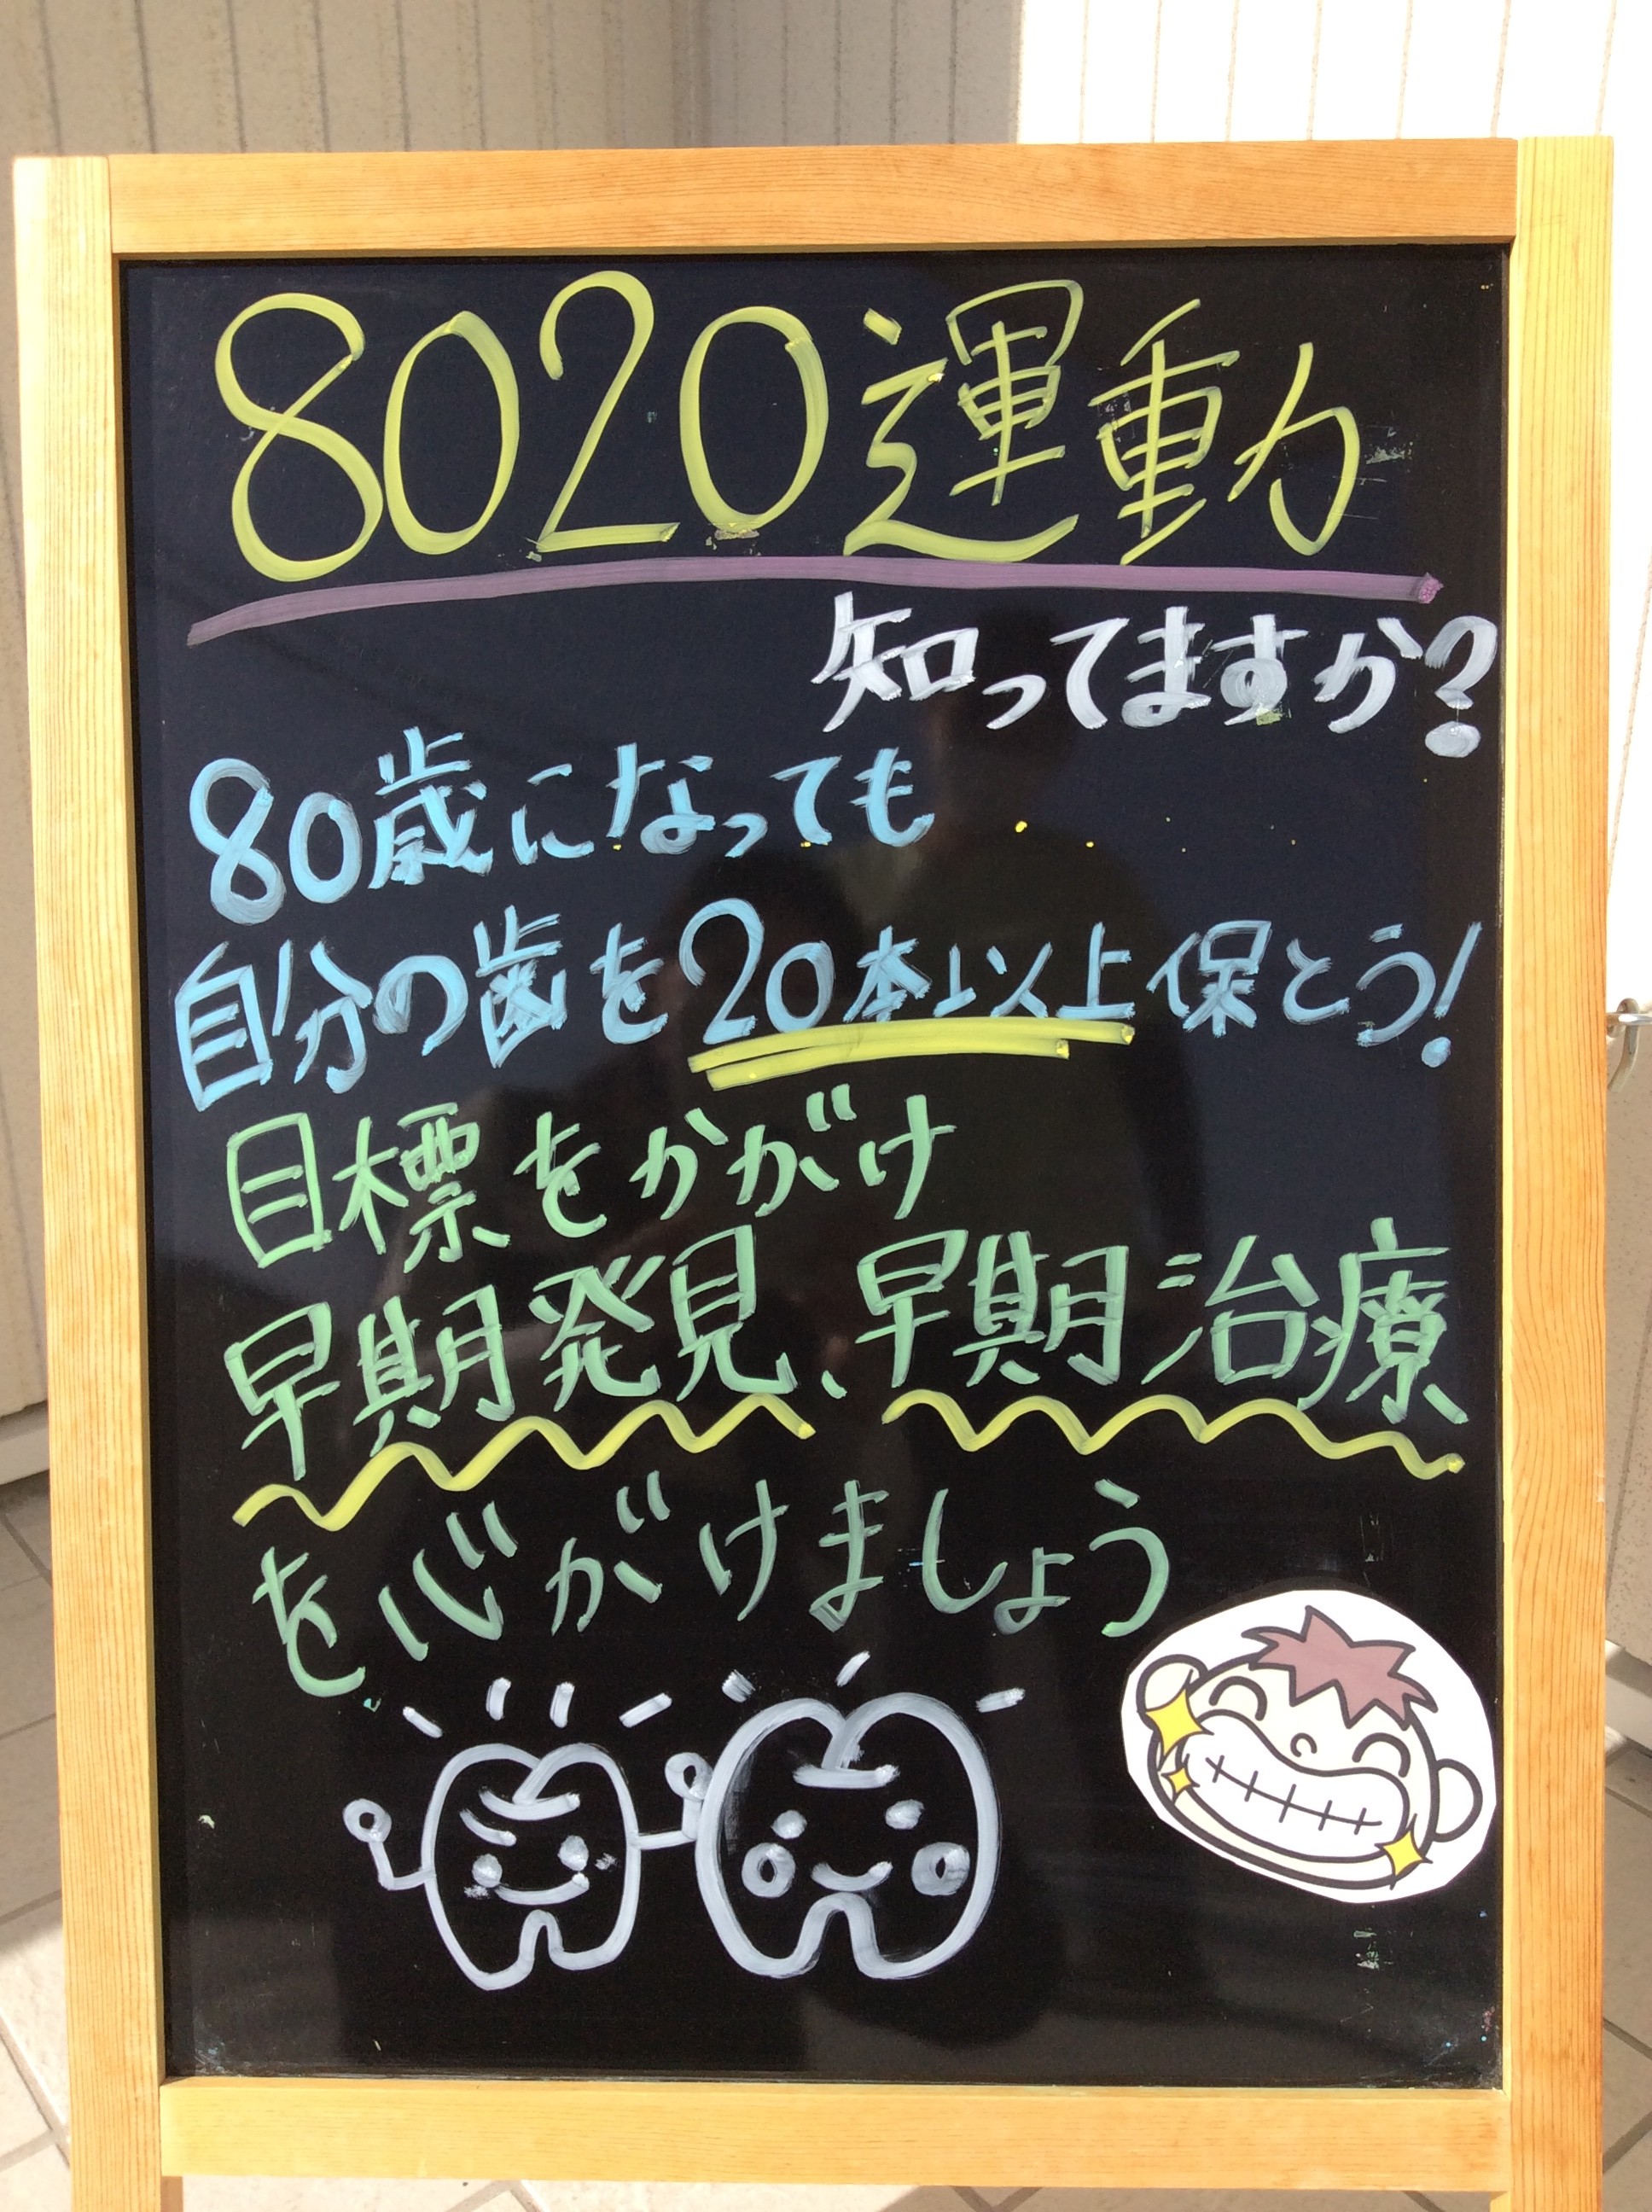 8020運動
知ってますか?
80歳になっても
自分の歯を20本以上保とう!
目標をかがけ
早期発見、早期治療
を心がけましょう